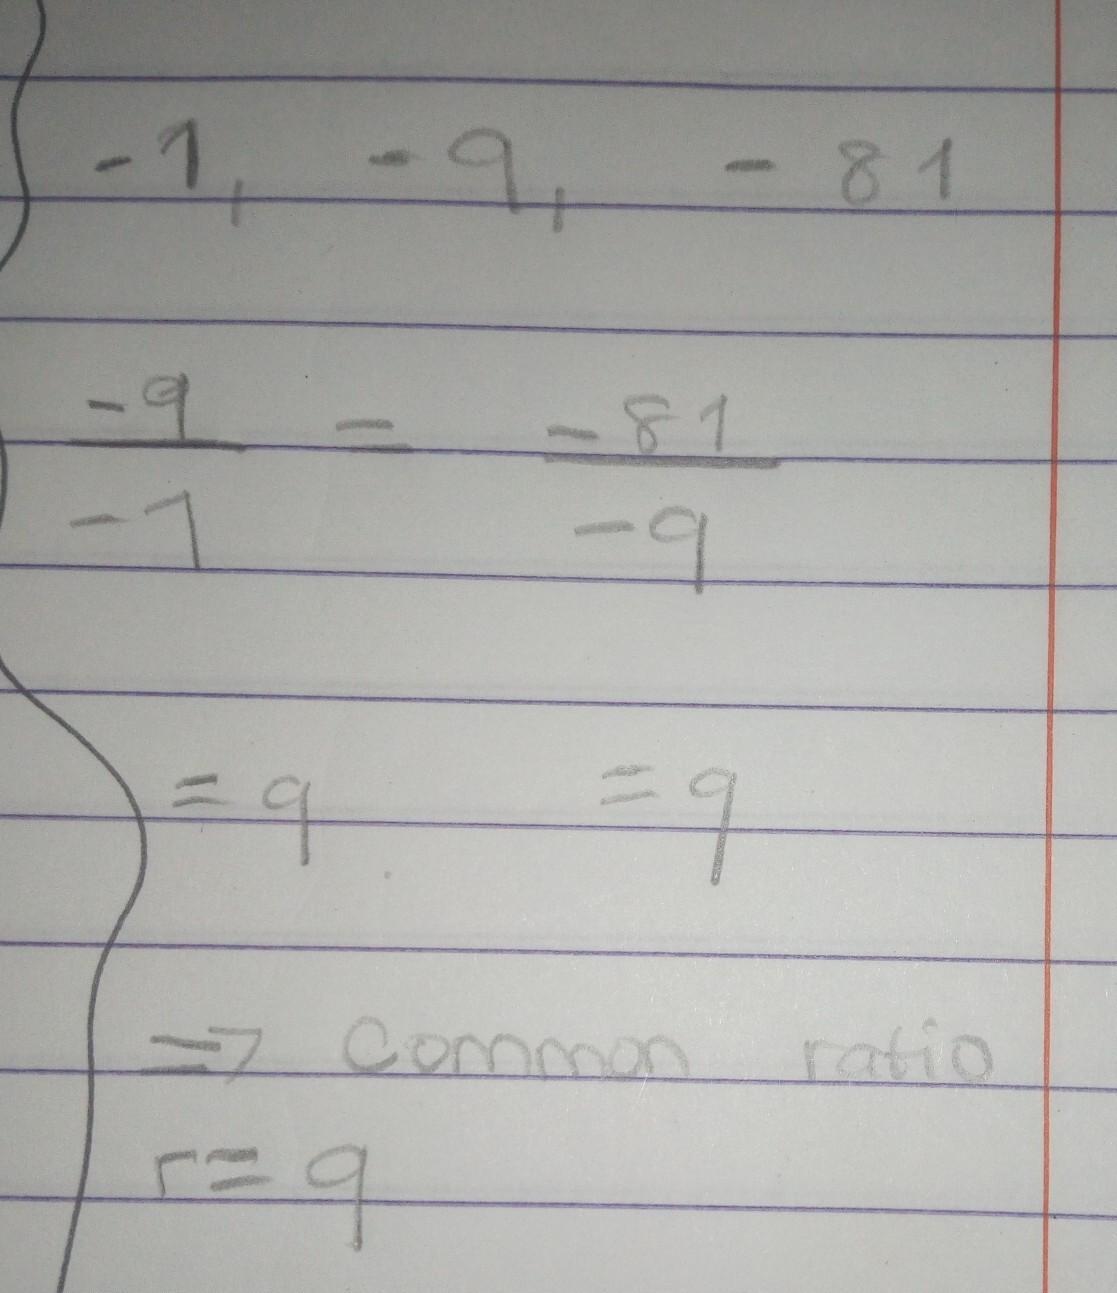 -1, -9, -81
-9/-1 = -81/-9
= 9 = 9
=> Common ratio
r = 9